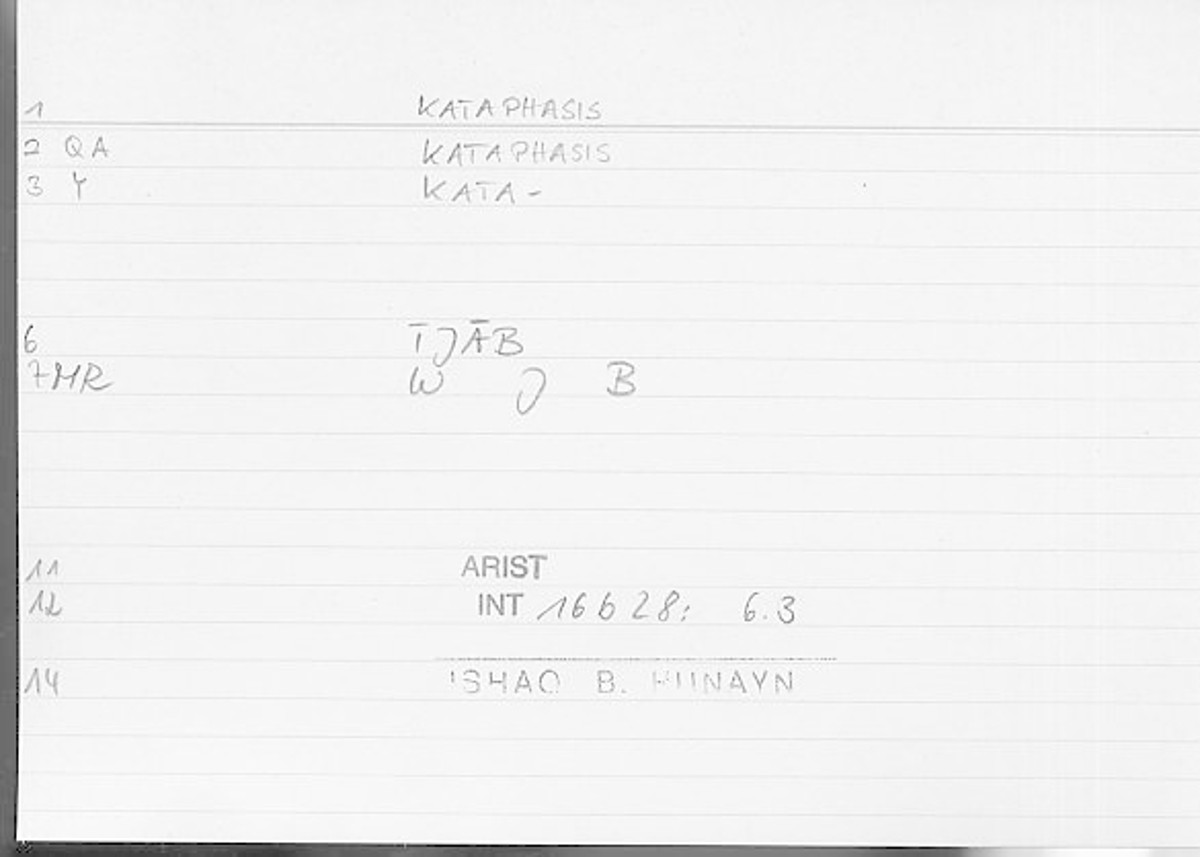 1 KATAPHASIS
2 QA KATAPHASIS
3 Y KATA-
6 ĪJĀB
7 MR W J B
11 ARIST
12 INT 16b28: 6.3
14 ISHAQ B. HUNAYN